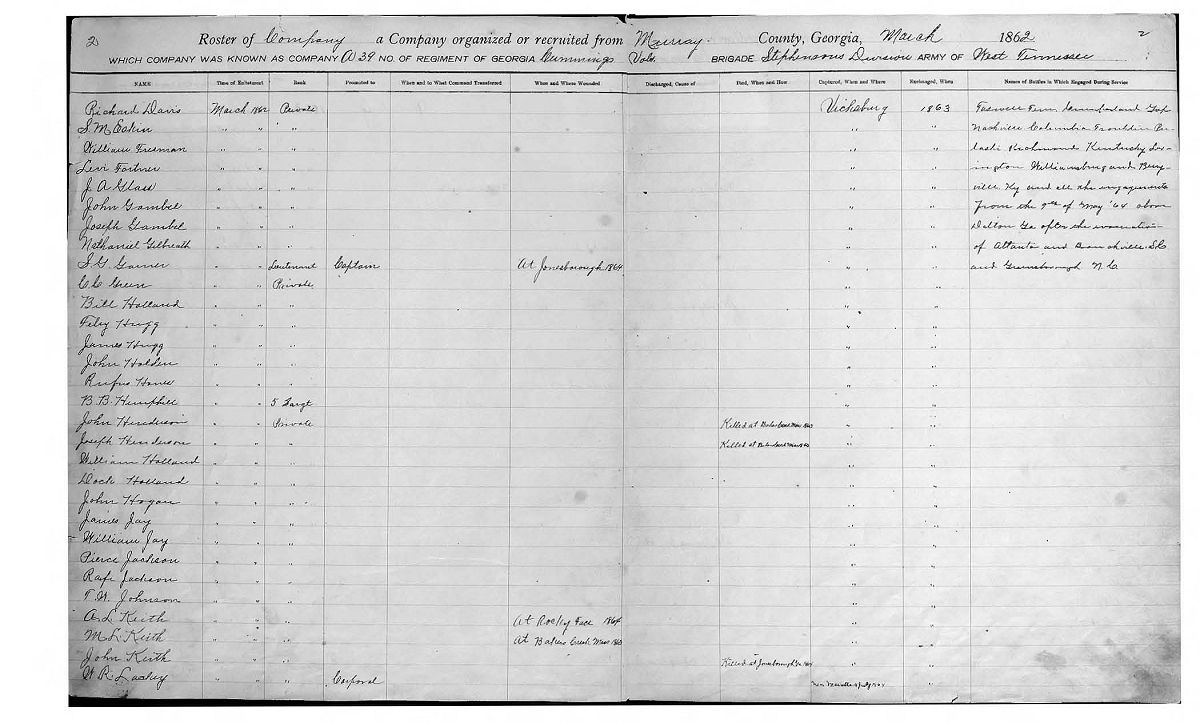 2 Roster of Company a Company organized or recruited from Murray County, Georgia, March 1862 2
WHICH COMPANY WAS KNOWN AS COMPANY A 39 NO. OF REGIMENT OF GEORGIA Cummings Vols. BRIGADE Stephensons Division ARMY OF West Tennessee
NAME Time of Enlistment Rank Promoted to When and to What Command Transferred When and Where Wounded Discharged, Cause of Died, When and How Captured, When and Where Exchanged, When Names of Battles in Which Engaged During Service
Richard Davis March 1862 Private Vicksburg 1863 Tenn Cumberland Gap
S. M. Eakin " " " " " Nashville Columbia Franklin Pu-
William Freeman " " " " " laski Richmond Kentucky Lex-
Levi Fortner " " " " " ington Williamsburg and Perry-
J. A Glass " " " " " ville Ky and all the engagements
John Gambel " " " " " from the 7th of May '64 above
Joseph Gambel " " " " " Dalton Ga after the evacuation
Nathaniel Gilbreath " " " " " of Atlanta and
S. G. Garner " " Lieutenant Captain At Jonesborough 1864 " " and Greensborough N. C
C. C. Green " " Private " "
Bill Holland " " " " "
Hugg " " " " "
James Hugg " " " " "
John Holden " " " " "
Rufus " " " " "
B. B. Hemphill " " 5 Sargt " "
John Henderson " " Private Killed at Baker Creek Miss 1863 " "
Joseph Henderson " " " Killed at Baker Creek Miss 1863 " "
William Holland " " " " "
Dock Holland " " " " "
John Hogan " " " " "
James Jay " " " " "
William Jay " " " " "
Pierce Jackson " " " " "
Rafe Jackson " " " " "
T. W. Johnson " " " " "
A. L. Keith " " " At Rocky Face 1864 " "
M. L. Keith " " " At Bakers Creek Miss 1863 " "
John Keith " " " Killed at Jonesborough Ga 1864 " "
W R Lackey " " Corporal "